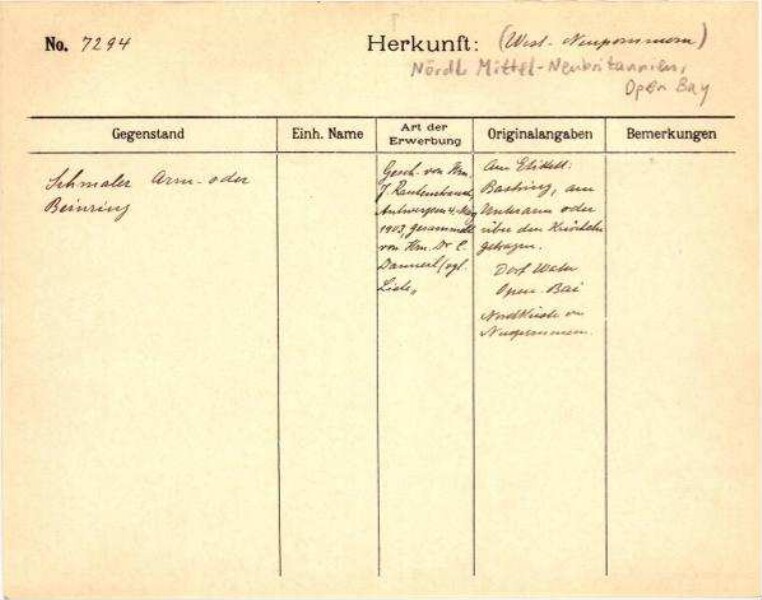 No. 7294
Herkunft: (West-Neupommern)
Nördl. Mittel-Neubritannien,
Open Bay
Gegenstand
Einh. Name
Art der
Erwerbung
Originalangaben
Bemerkungen
Schmaler Arm- oder
Beinring
Gesch. von Hrn.
J. Rautenstrauch
Antwerpen 4. May
1903, gesammelt
von Hrn. Dr E.
Danneil (vgl.
Liste,
Am Etikett:
Bastring, am
Unterarm oder
über den Knöcheln
getragen.
Dorf
Open-Bai
Nordküste v.
Neupommern.